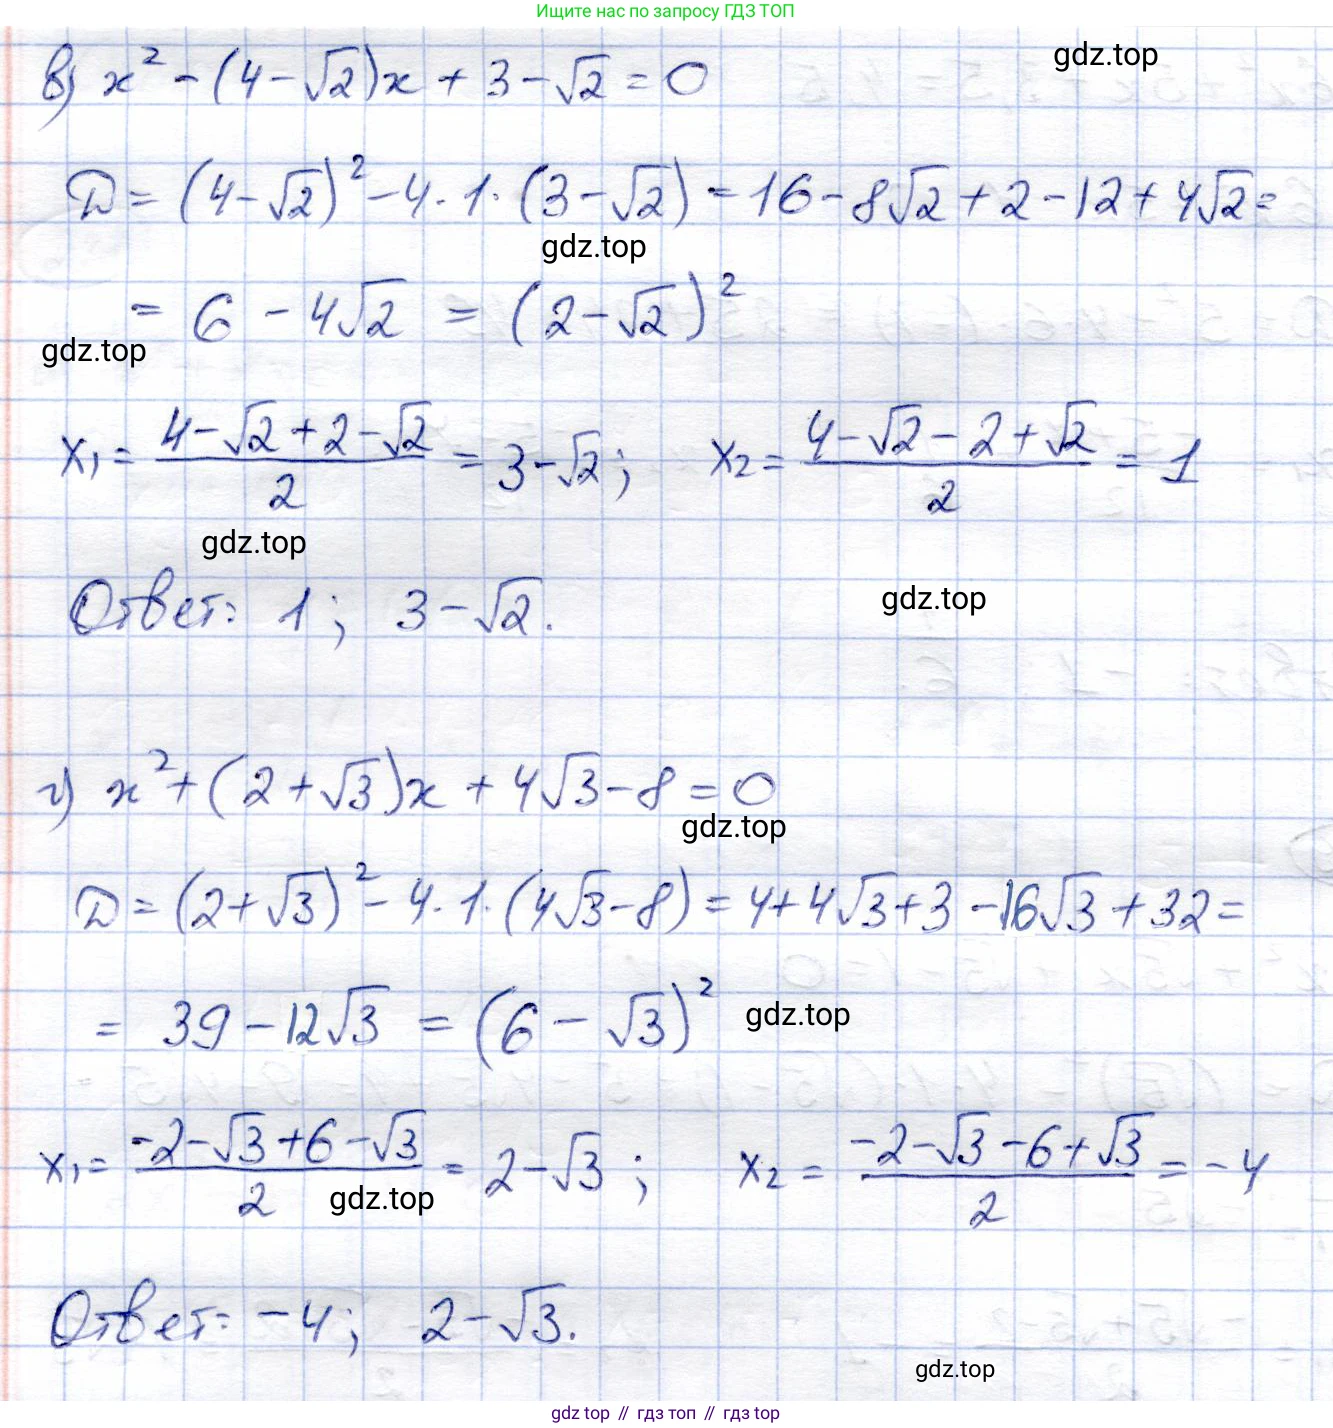 Ищите нас по запросу ГДЗ ТОП
gdz.top
в) x² - (4 - √2)x + 3 - √2 = 0
D = (4 - √2)² - 4 · 1 · (3 - √2) = 16 - 8√2 + 2 - 12 + 4√2 =
gdz.top
= 6 - 4√2 = (2 - √2)²
gdz.top
x₁ = (4 - √2 + 2 - √2)/2 = 3 - √2; x₂ = (4 - √2 - 2 + √2)/2 = 1
gdz.top
Ответ: 1; 3 - √2.
gdz.top
г) x² + (2 + √3)x + 4√3 - 8 = 0
gdz.top
D = (2 + √3)² - 4 · 1 · (4√3 - 8) = 4 + 4√3 + 3 - 16√3 + 32 =
= 39 - 12√3 = (6 - √3)²
gdz.top
x₁ = (-2 - √3 + 6 - √3)/2 = 2 - √3; x₂ = (-2 - √3 - 6 + √3)/2 = -4
gdz.top
Ответ: -4; 2 - √3.
gdz.top
gdz top // гдз топ // gdz top